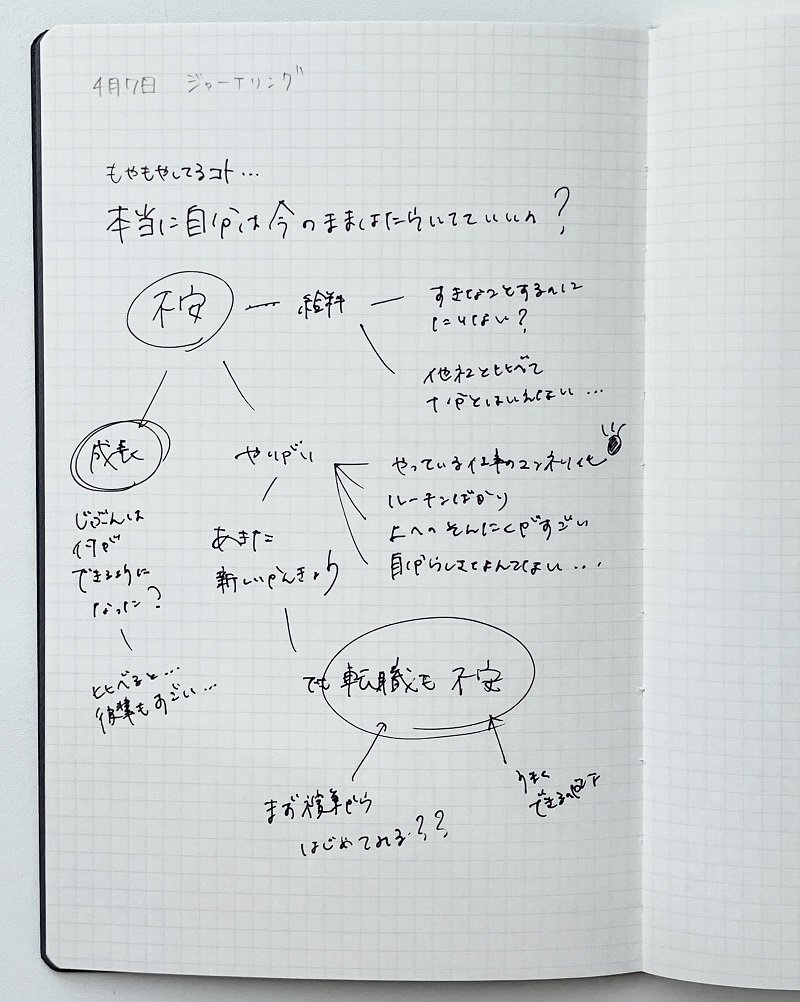 4月7日 ジャーナリング
もやもやしてるコト…
本当に自分は今のままはたらいてていいの?
不安
給料
すきなことするのに
たりない?
他社と比べて
十分とはいえない…
成長
やりがい
やっている仕事のマンネリ化
ルーチンばかり
上へのそんたくがすごい
自分らしさなんてない…
じぶんは
何が
できるように
なった?
あきた
新しいかんきょう
比べると…
後輩もすごい…
でも転職も不安
まず複業から
はじめてみる??
うまく
できるのか